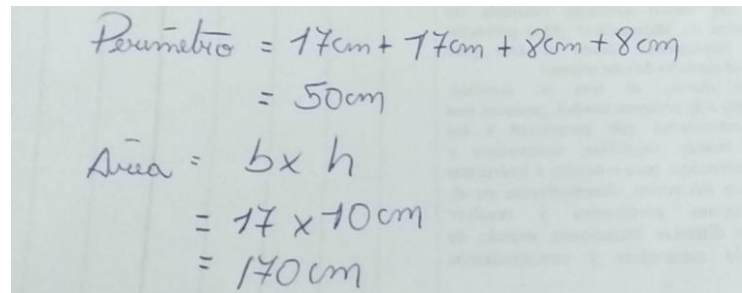 Perímetro = 17cm + 17cm + 8cm + 8cm
= 50cm
Área = b x h
= 17 x 10cm
= 170cm